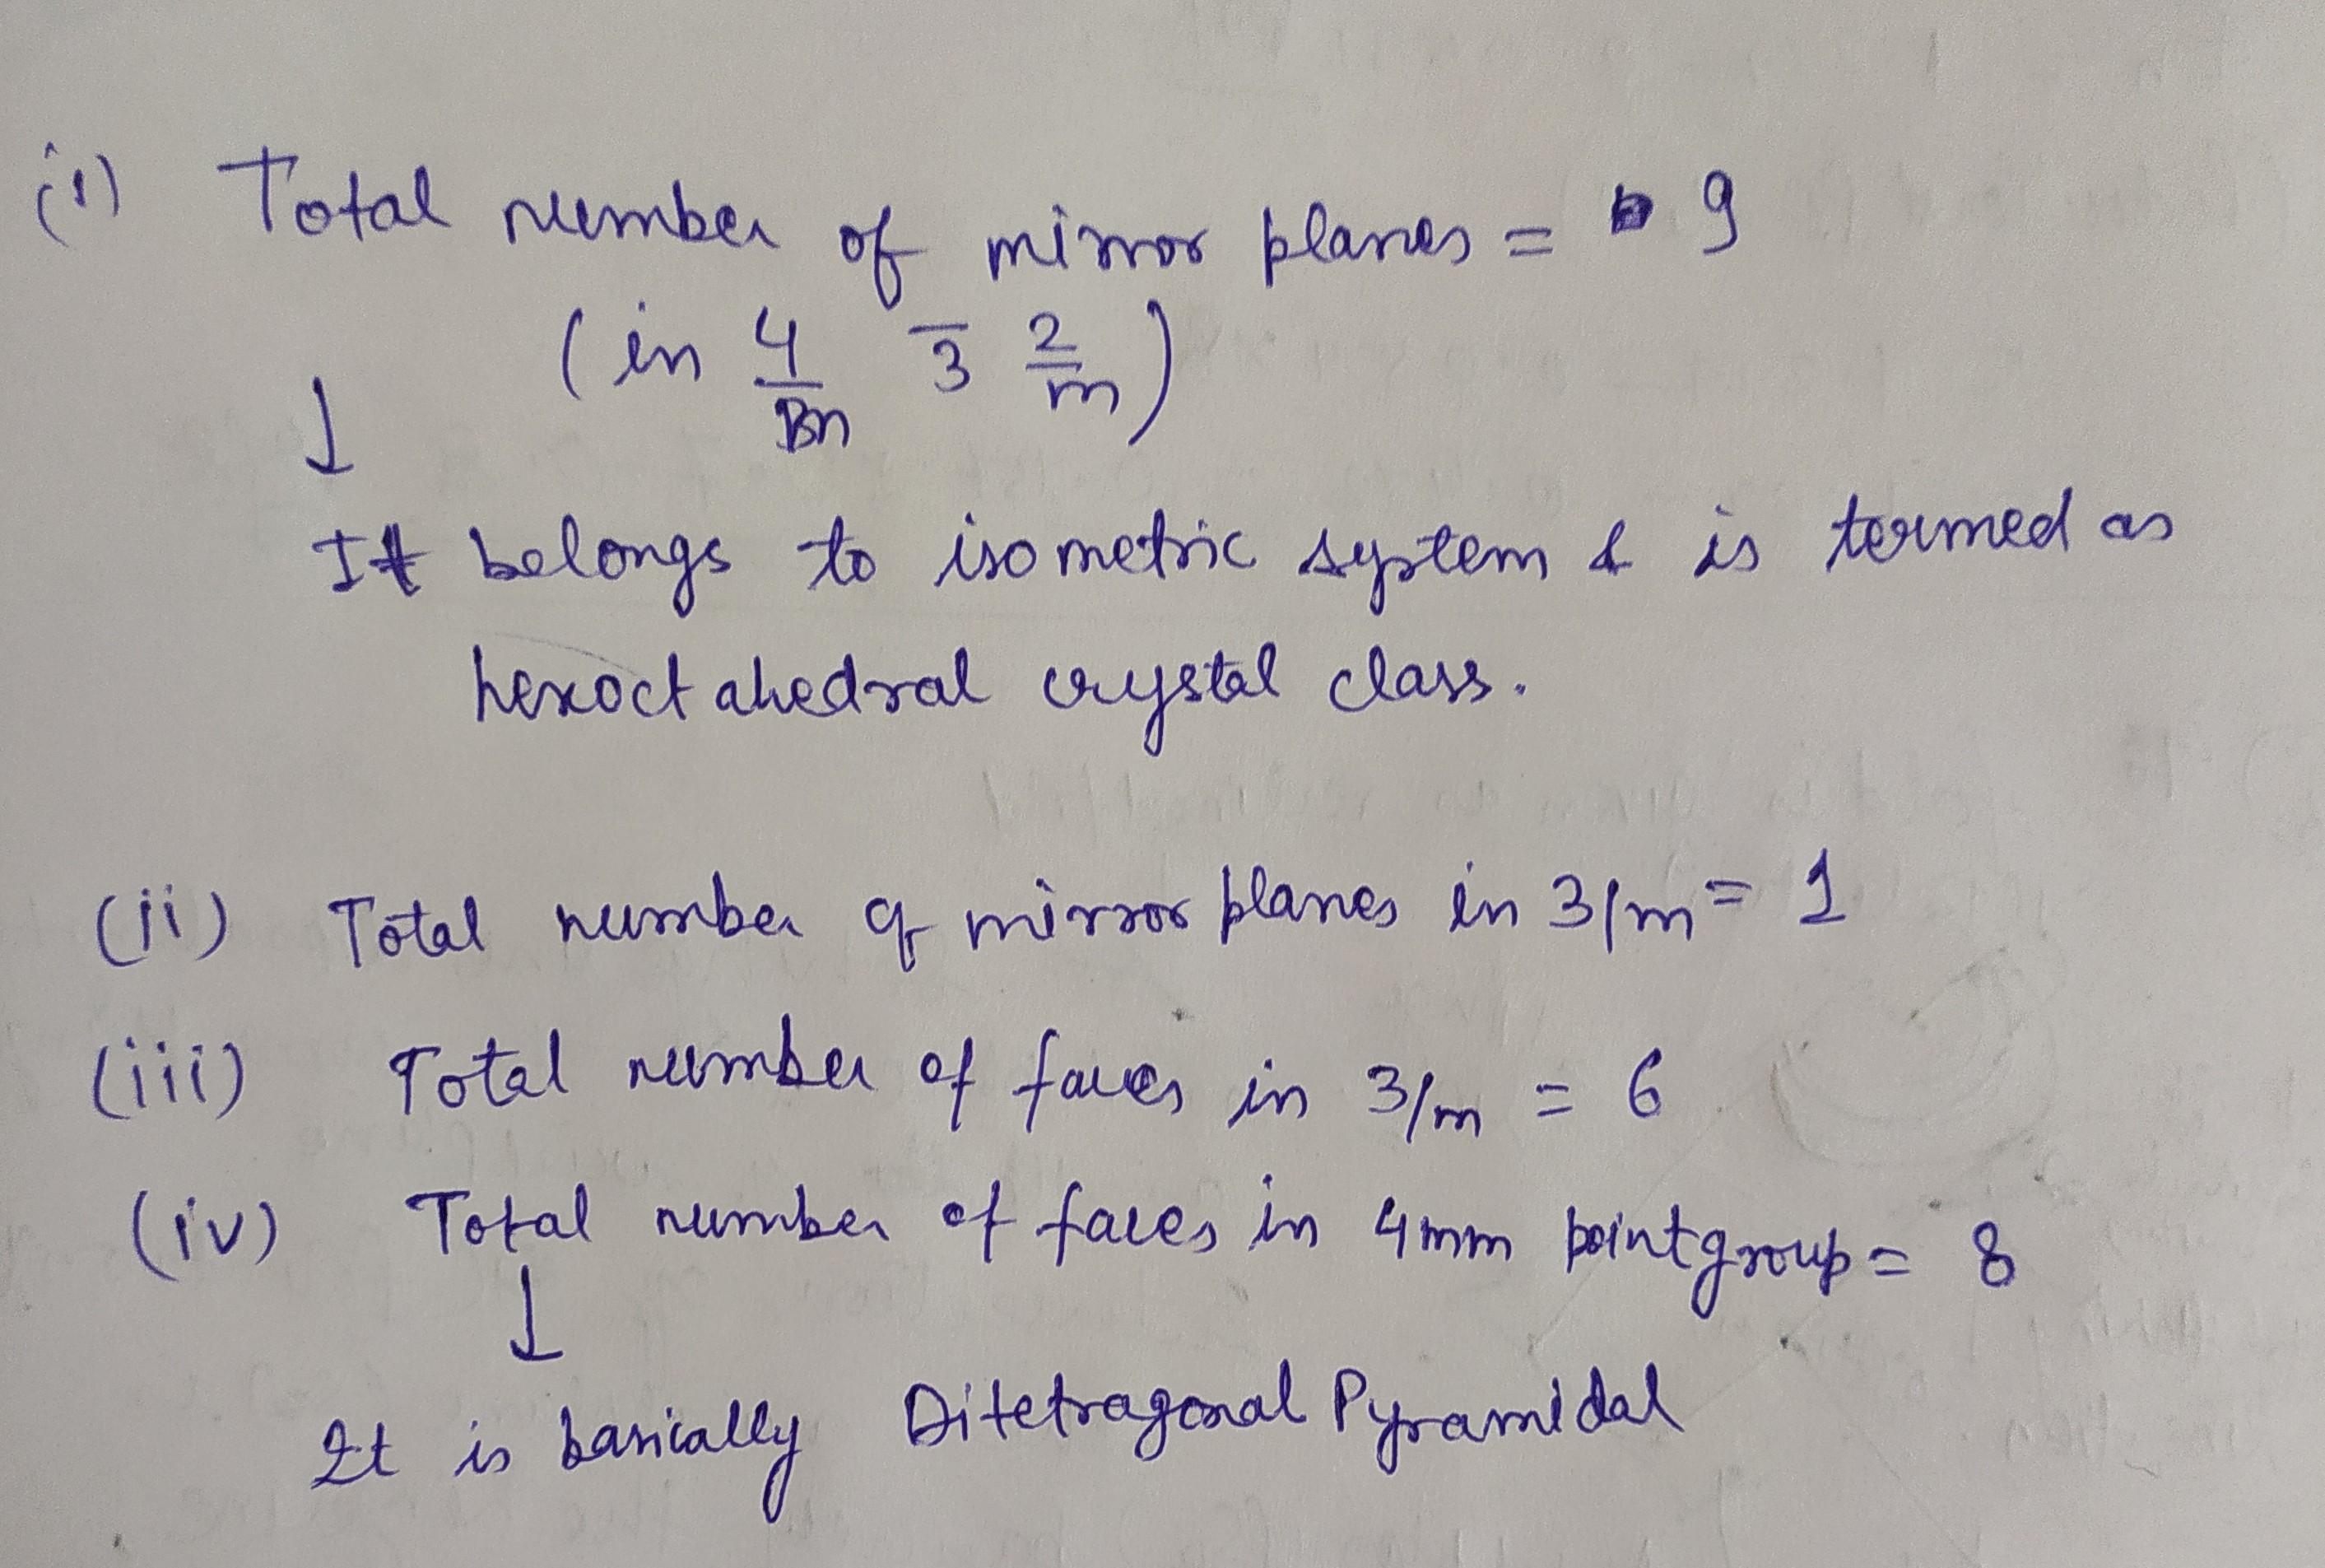 (i) Total number of mirror planes = 9
(in 4/m 3̅ 2/m)
↓
It belongs to isometric system & is termed as
hexoctahedral crystal class.
(ii) Total number of mirror planes in 3/m = 1
(iii) Total number of faces in 3/m = 6
(iv) Total number of faces in 4mm point group = 8
↓
It is basically Ditetragonal Pyramidal